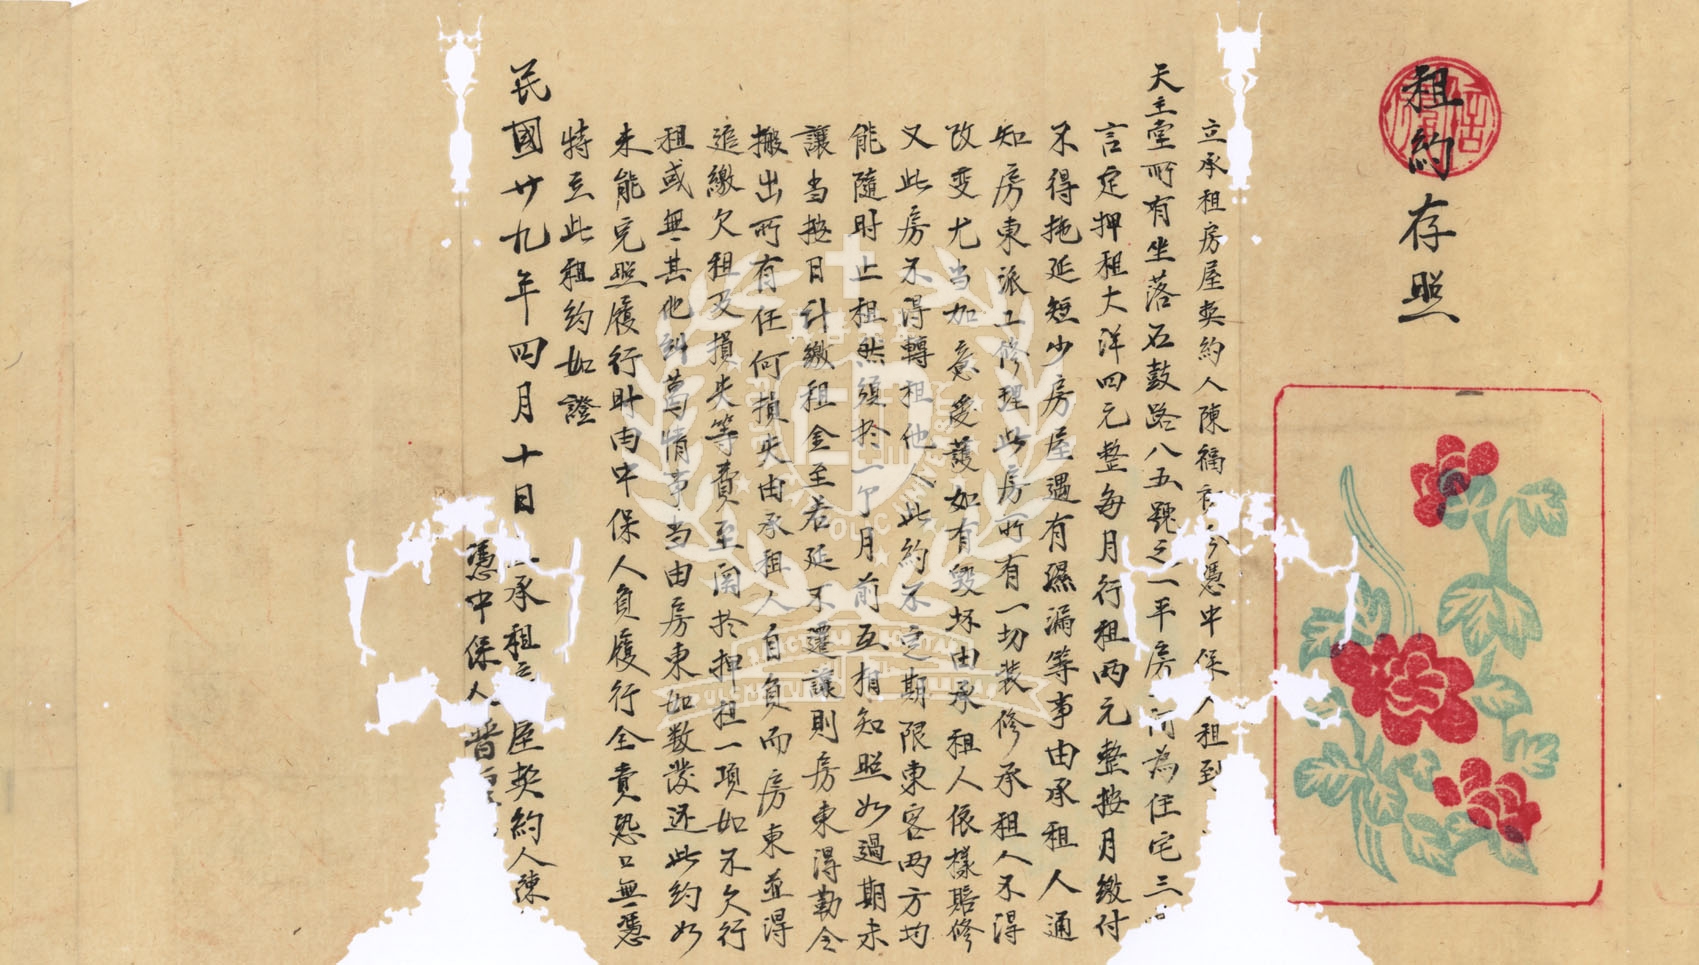 租約存照
立承租房屋契約人陳福 今憑中保人租到
天主堂所有坐落石鼓路八五號之一平房 間為住宅三
言定押租大洋四元整每月行租两元整按月繳付
不得拖延短少房屋遇有濕漏等事由承租人通
知房東派工修理此房所有一切装修承租人不得
改变尤当加意爱護如有毀坏由承租人依樣賠修
又此房不得轉租他人此約不定期限東客两方均
能隨时止租然須於一个月前互相知照如過期未
讓当按日计繳租金至若延不遷讓則房東得勤令
搬出所有任何損失由承租人自負而房東並得
追繳欠租及損失等費至関於押租一項如不欠行
租或無其他糾葛情事当由房東如数發还此約如
未能完照履行时由中保人負履行全責恐口無憑
特立此租約如證
民國廿九年四月十日
承租 屋契約人陳
憑中保人晋